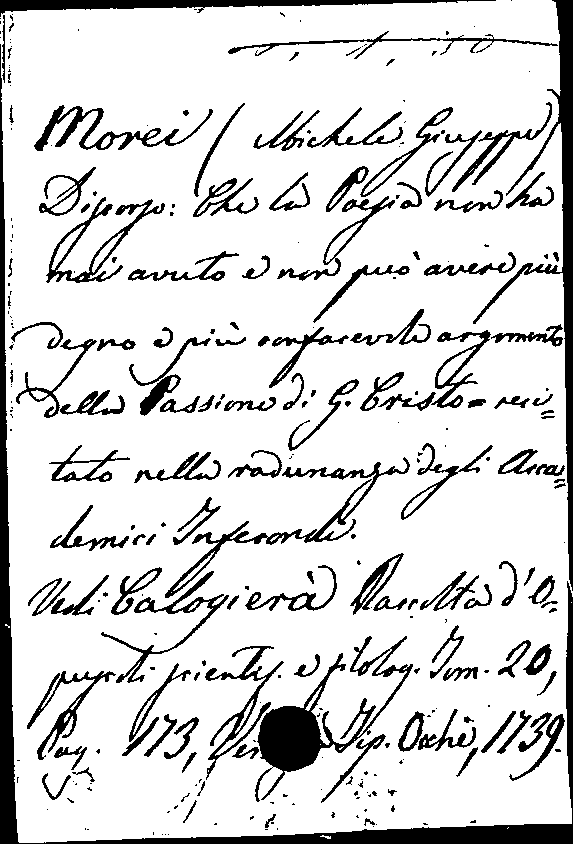 Morei (Michele Giuseppe)
Discorso: Che la Poesia non ha
mai avuto e non può avere più
degno e più confacevole argomento
della Passione di G. Cristo = reci=
tato nella radunanza degli Acca=
demici Infecondi.
Vedi Calogierà Raccolta d'O=
puscoli scientif. e filolog. Tom. 20,
Pag. 173, Tip. Occhi, 1739.